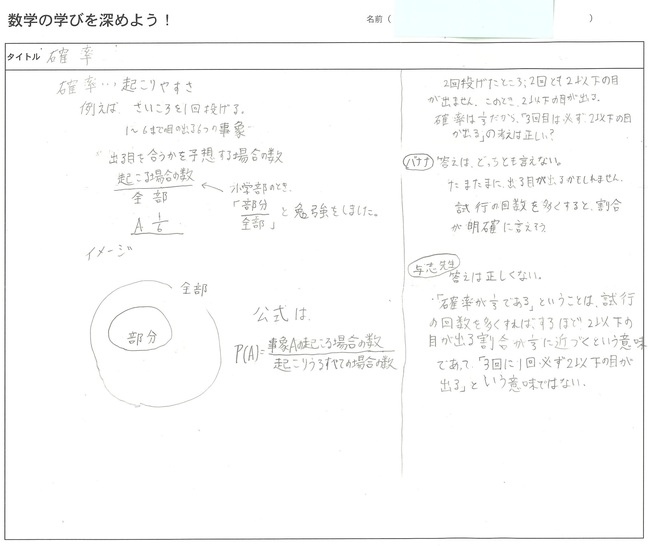 数学の学びを深めよう！
名前（　　　）
タイトル 確率
確率…起こりやすさ
例えば、さいころを1回投げる。
1〜6まで目の出る6つの事象
出る目を合うかを予想する場合の数
起こる場合の数
全部
A 1/6
小学部のとき、
「部分/全部」と勉強をしました。
イメージ
全部
部分
公式は、
P(A)=事象Aの起こる場合の数
起こりうるすべての場合の数
2回投げたところ、2回とも2以下の目
が出ません。このとき、2以下の目が出る。
確率は1/3だから、「3回目は必ず、2以下の目
が出る」の考えは正しい？
答えは、どっちとも言えない。
たまたまに、出る目が出るかもしれません。
試行の回数を多くすると、割合
が明確に言えそう
先生
答えは正しくない。
・「確率が1/3である」ということは、試行
の回数を多くすれば、するほど、2以下の
目が出る割合が1/3に近づくという意味
であって、「3回に1回必ず2以下の目が
出る」という意味ではない。